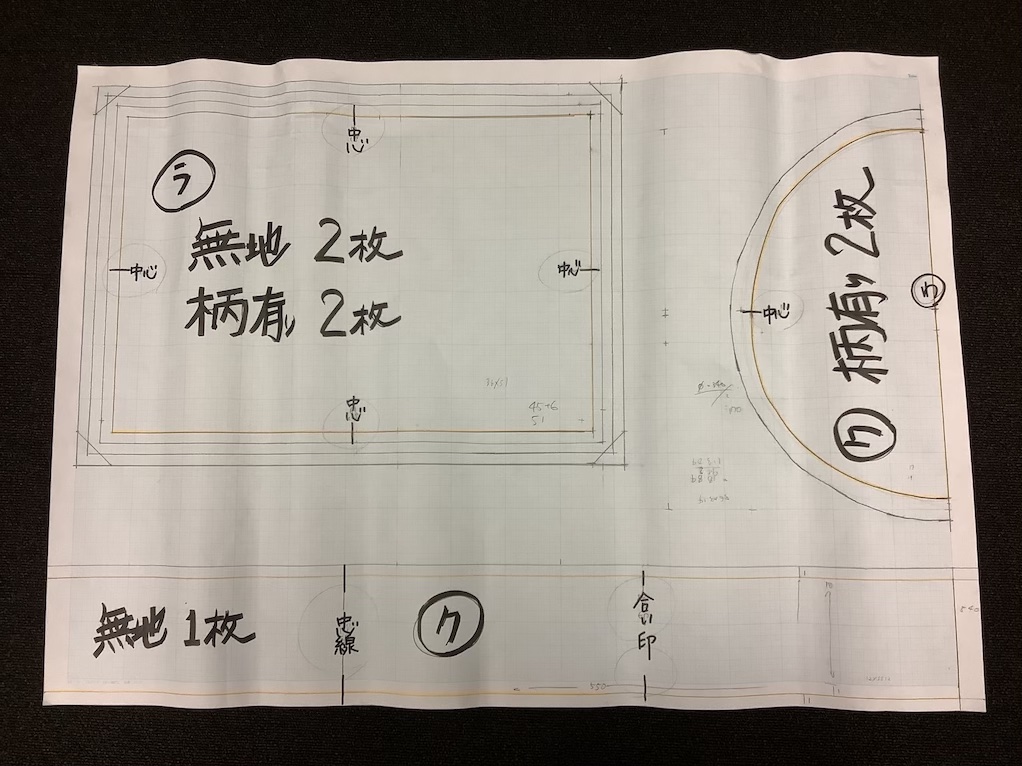 ラ
中心
無地 2枚
柄有り 2枚
中心
中心
中心
45+6
51
中心
柄有り 2枚
ク
わ
無地 1枚
中心線
ク
合い印
550
540